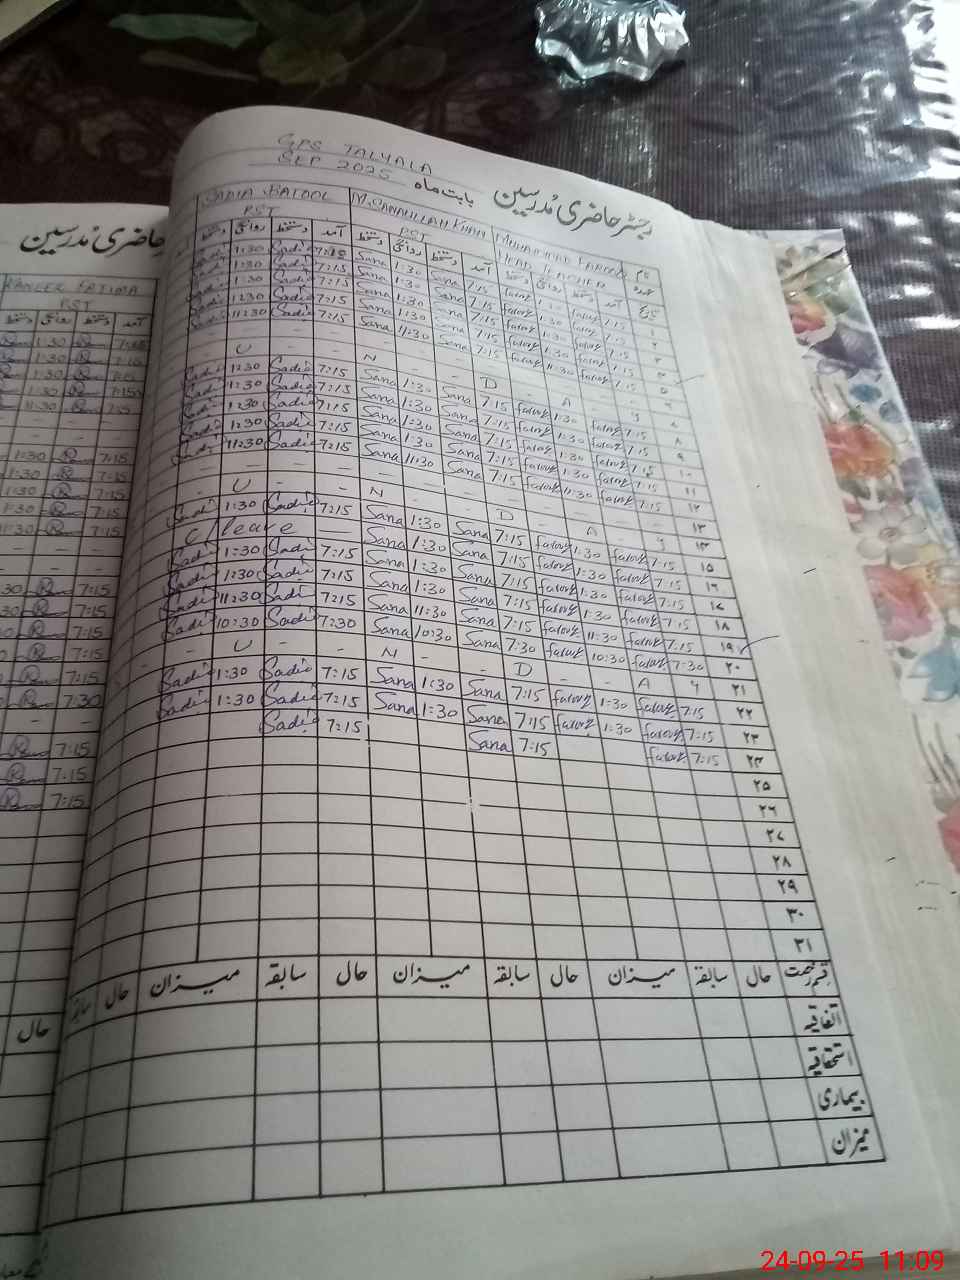 GPS TALYALA
SEP 2025 بابت ماہ رجسٹر حاضری مُدرسین
SADIA BATOOL M.SANAULLAH KHAN MUHAMMAD FAROOQ نام
PST PST HEAD TEACHER عہدہ
دستخط روانگی دستخط آمد دستخط روانگی دستخط آمد دستخط روانگی دستخط آمد تاریخ
1:30 Sadia 7:15 Sana 1:30 Sana 7:15 farooq 1:30 farooq 7:15 ۱
Sadia 1:30 Sadia 7:15 Sana 1:30 Sana 7:15 farooq 1:30 farooq 7:15 ۲
Sadia 1:30 Sadia 7:15 Sana 1:30 Sana 7:15 farooq 1:30 farooq 7:15 ۳
Sadia 1:30 Sadia 7:15 Sana 1:30 Sana 7:15 farooq 1:30 farooq 7:15 ۴
Sadia 11:30 Sadia 7:15 Sana 11:30 Sana 7:15 farooq 11:30 farooq 7:15 ۵
– – – – – – – – – – – – ۶
– U – – N – – D – A – Y ۷
Sadia 1:30 Sadia 7:15 Sana 1:30 Sana 7:15 farooq 1:30 farooq 7:15 ۸
Sadia 1:30 Sadia 7:15 Sana 1:30 Sana 7:15 farooq 1:30 farooq 7:15 ۹
Sadia 1:30 Sadia 7:15 Sana 1:30 Sana 7:15 farooq 1:30 farooq 7:15 ۱۰
Sadia 1:30 Sadia 7:15 Sana 1:30 Sana 7:15 farooq 1:30 farooq 7:15 ۱۱
Sadia 11:30 Sadia 7:15 Sana 11:30 Sana 7:15 farooq 11:30 farooq 7:15 ۱۲
– – – – – – – – – – – – ۱۳
– U – – N – – D – A – Y ۱۴
Sadia 1:30 Sadia 7:15 Sana 1:30 Sana 7:15 farooq 1:30 farooq 7:15 ۱۵
C/leave – Sana 1:30 Sana 7:15 farooq 1:30 farooq 7:15 ۱۶
Sadia 1:30 Sadia 7:15 Sana 1:30 Sana 7:15 farooq 1:30 farooq 7:15 ۱۷
Sadia 1:30 Sadia 7:15 Sana 1:30 Sana 7:15 farooq 1:30 farooq 7:15 ۱۸
Sadia 11:30 Sadia 7:15 Sana 11:30 Sana 7:15 farooq 11:30 farooq 7:15 ۱۹
Sadia 10:30 Sadia 7:30 Sana 10:30 Sana 7:30 farooq 10:30 farooq 7:30 ۲۰
– U – – N – – D – – A Y ۲۱
Sadia 1:30 Sadia 7:15 Sana 1:30 Sana 7:15 farooq 1:30 farooq 7:15 ۲۲
Sadia 1:30 Sadia 7:15 Sana 1:30 Sana 7:15 farooq 1:30 farooq 7:15 ۲۳
Sadia 7:15 Sana 7:15 farooq 7:15 ۲۴
۲۵
۲۶
۲۷
۲۸
۲۹
۳۰
۳۱
سابقہ حال میزان سابقہ حال میزان سابقہ حال میزان سابقہ حال قسم رخصت
اتفاقیہ
استحقاقیہ
بیماری
میزان
حاضری مُدرسین
FATIMA
PST
دستخط روانگی دستخط آمد
1:30
1:30 7:15
1:30 7:15
1:30 7:15
11:30 7:15
1:30 7:15
1:30 7:15
1:30 7:15
1:30 7:15
11:30 7:15
7:15
7:15
7:15
7:15
7:30
7:15
7:15
7:15
حال
24-09-25 11:09